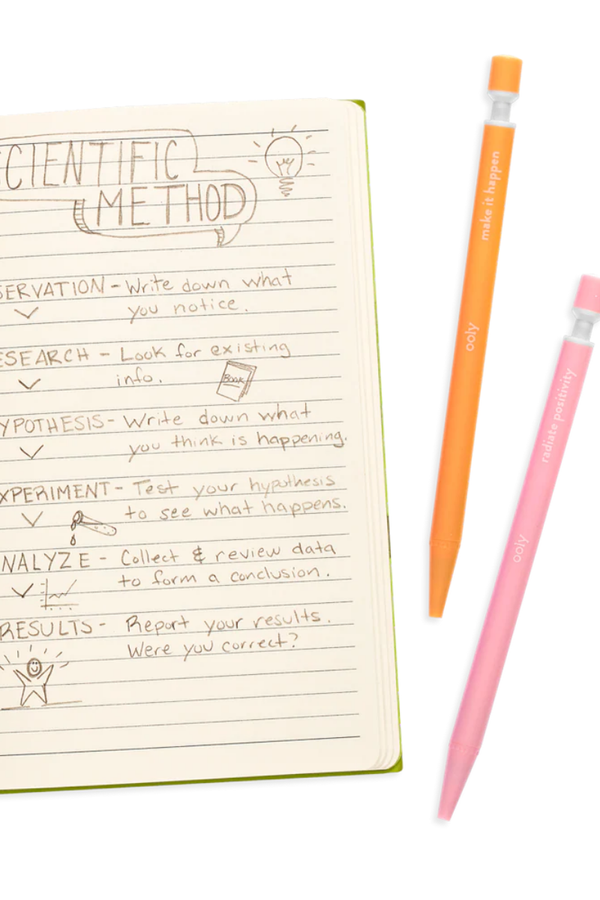 CIENTIFIC
METHOD
SERVATION - Write down what
you notice.
ESEARCH - Look for existing
info.
BOOK
YPOTHESIS - Write down what
you think is happening.
XPERIMENT - Test your hypothesis
to see what happens.
NALYZE - Collect & review data
to form a conclusion.
RESULTS - Report your results.
Were you correct?
make it happen
ooly
radiate positivity
ooly